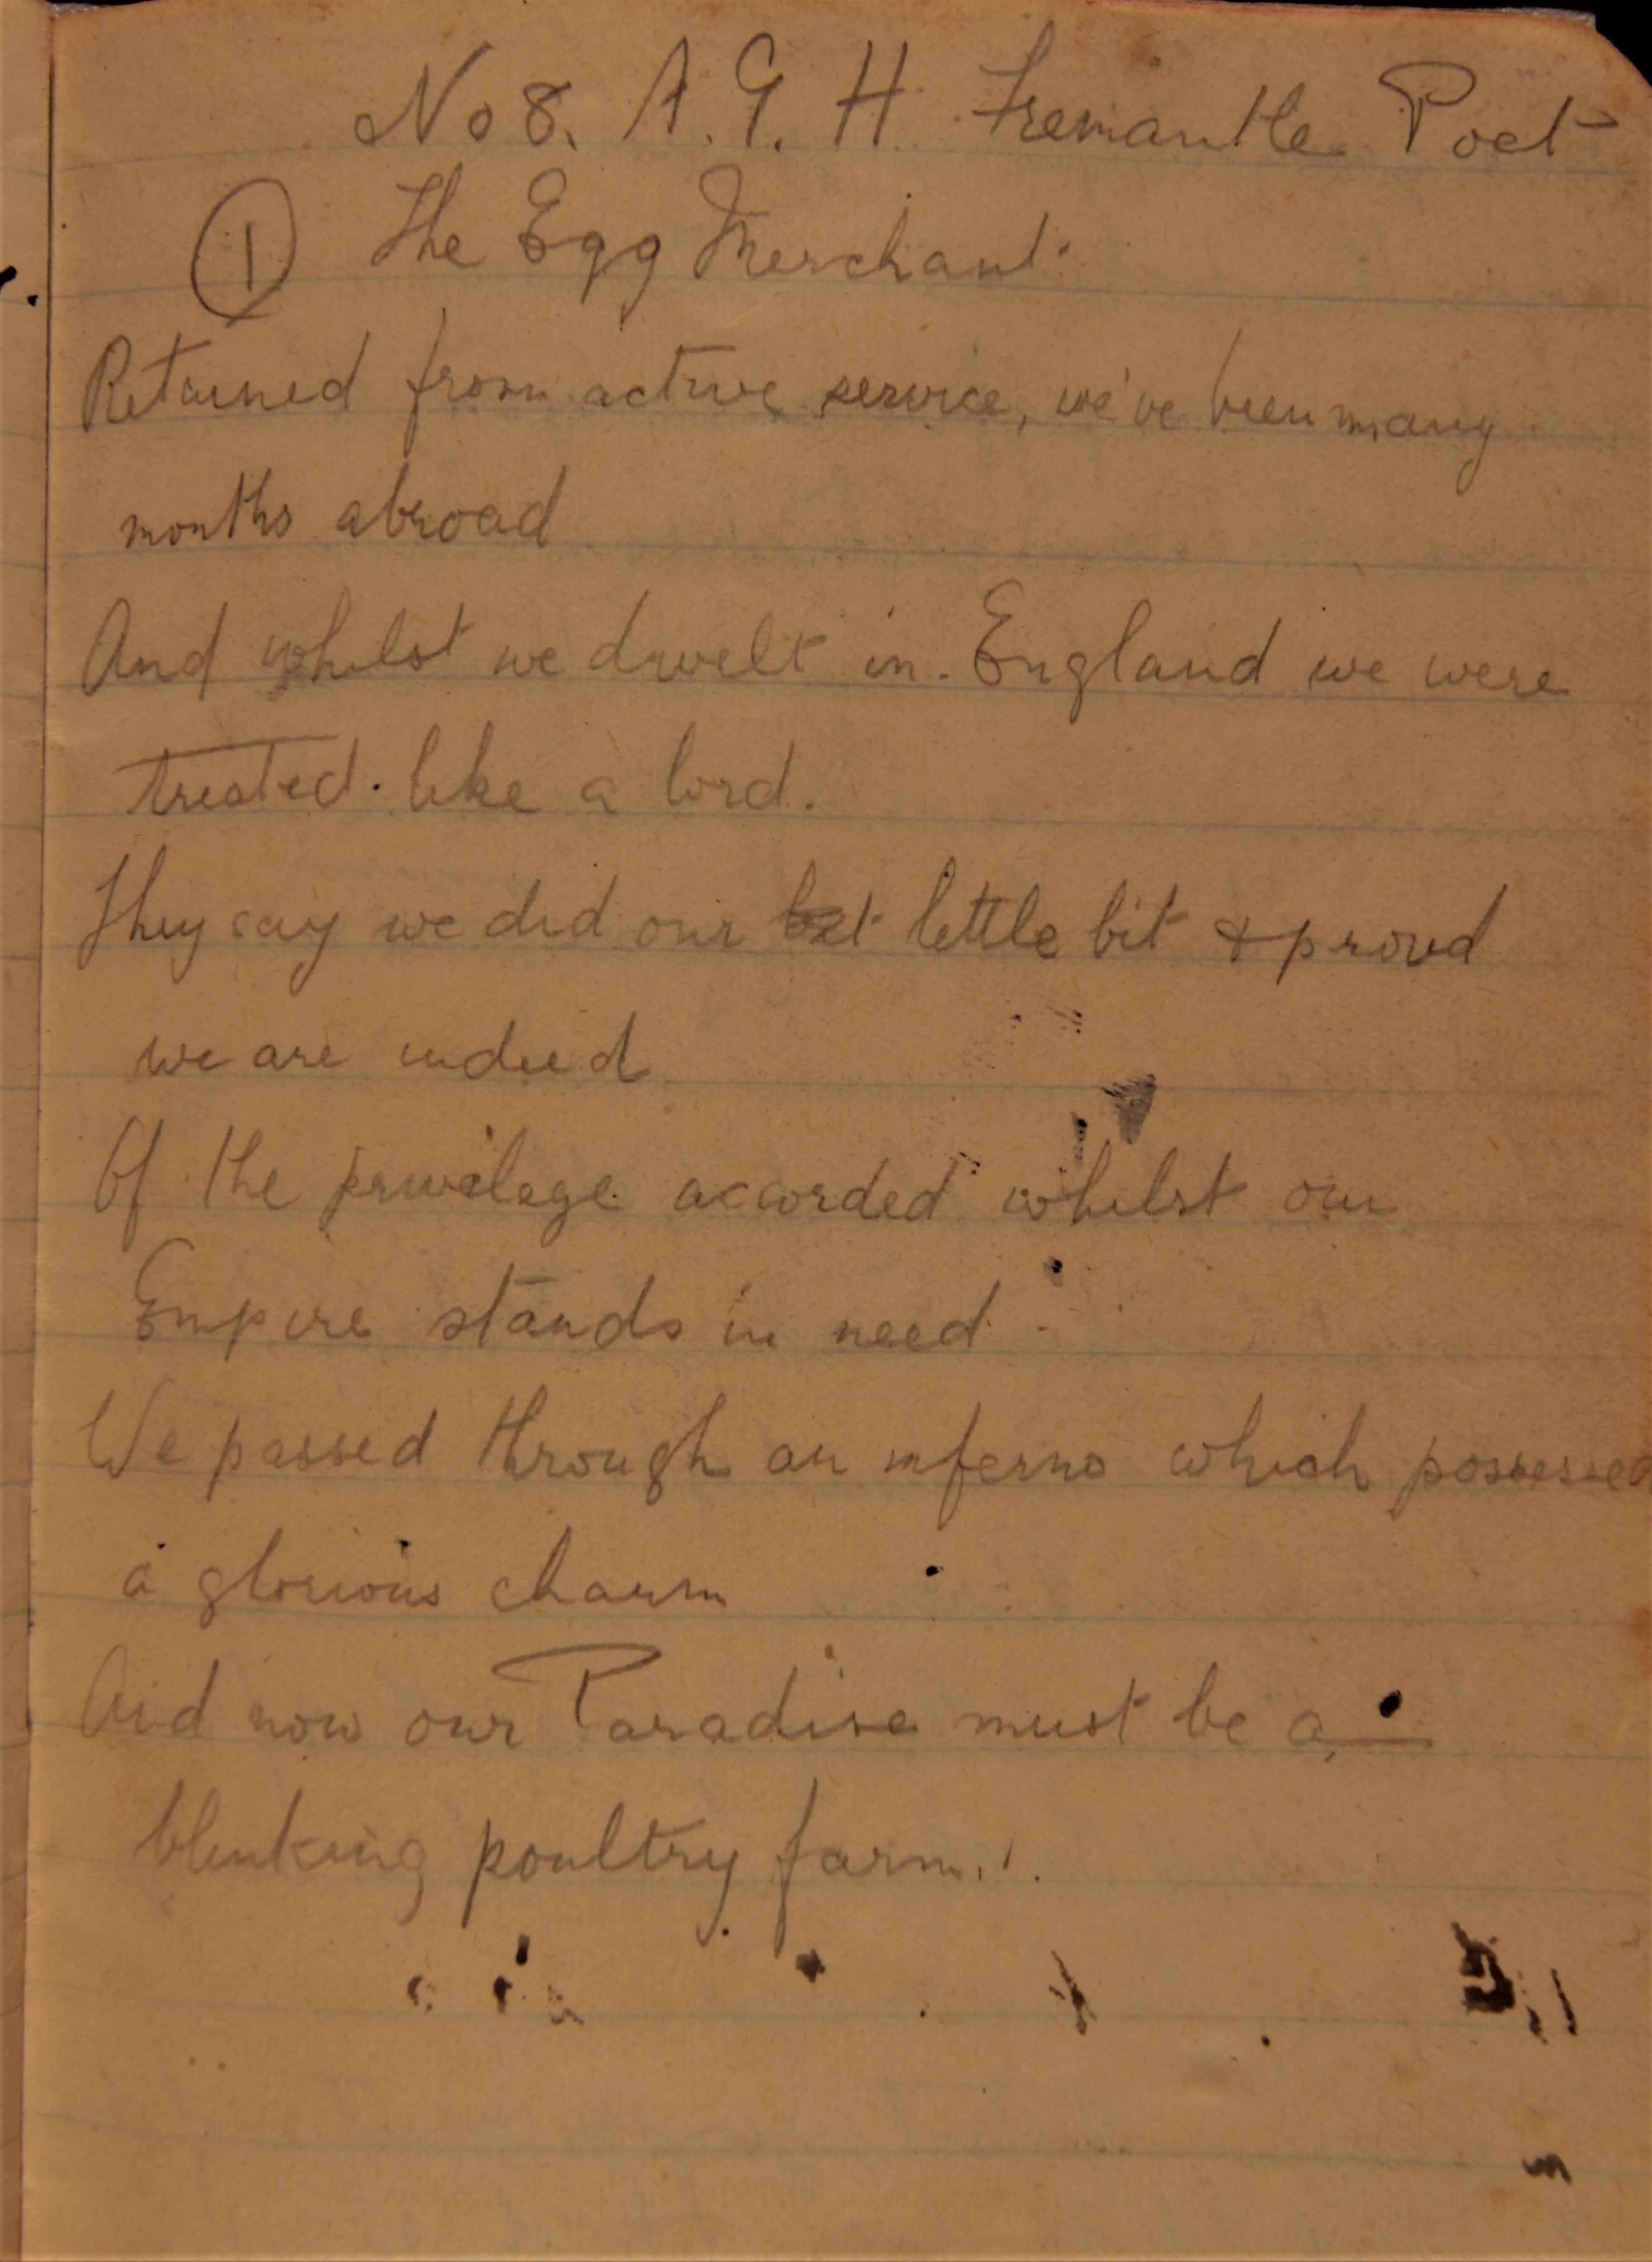 No 8. A. G. H. Fremantle Poet
① The Egg Merchant.
Returned from active service, we've been many
months abroad
And whilst we dwelt in England we were
treated like a lord.
They say we did our little bit & proud
we are indeed
Of the privilege accorded whilst our
Empire stands in need
We passed through an inferno which possessed
a glorious charm
And now our Paradise must be a
blinking poultry farm.!.